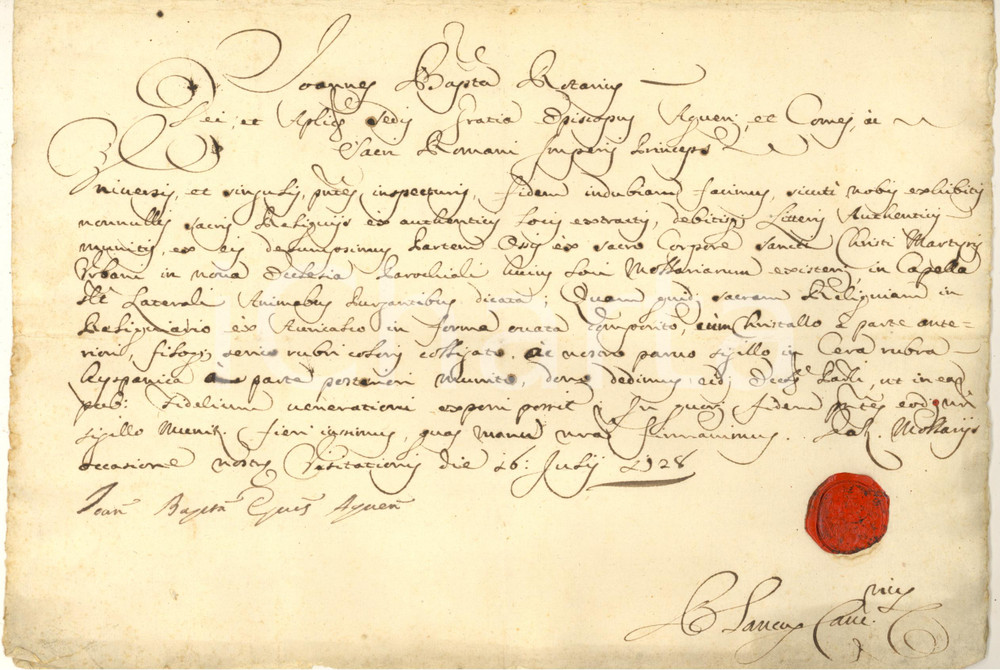 Joannes Bapta Rotarius
Dei, et Aplicæ Sedis Gratia Episcopus Aquen; et Comes, ac
Sacri Romani Imperii Princeps
Universis, et singulis, pntes inspecturis, fidem indubiam facimus, sicuti nobis exhibitis
nonnullis sacris Reliquijs ex authenticis locis extractis, debitisq; Litteris Authenticis
munitis, ex eis desumpsimus Partem Ossis ex sacro Corpore Sancti Christi Martyris
Urbani in nova Ecclesia Parochiali huius loci Mollariarum existen; in Capella
Laterali Animabus Purgantibus dicata; Quam quid; sacram Reliquiam in
Reliquiario ex Auricalco in forma ovata composito, cum Christallo a parte ante-
riori, filoq; serico rubri coloris colligato, ac nostro parvo sigillo in Cera rubra
hyspanica a parte posteriori munito, dono dedimus, eid; Eccæ Pārli, ut in ead
pub: Fidelium venerationi exponi possit. In quor; fidem pntes eod; nrō
sigillo munit. fieri iussimus, quas manu nra firmavimus. Dat. Mollarijs
occasione nostræ Visitationis die 26: Julij 1728
Joan Bapta Epus Aquen
iCharta